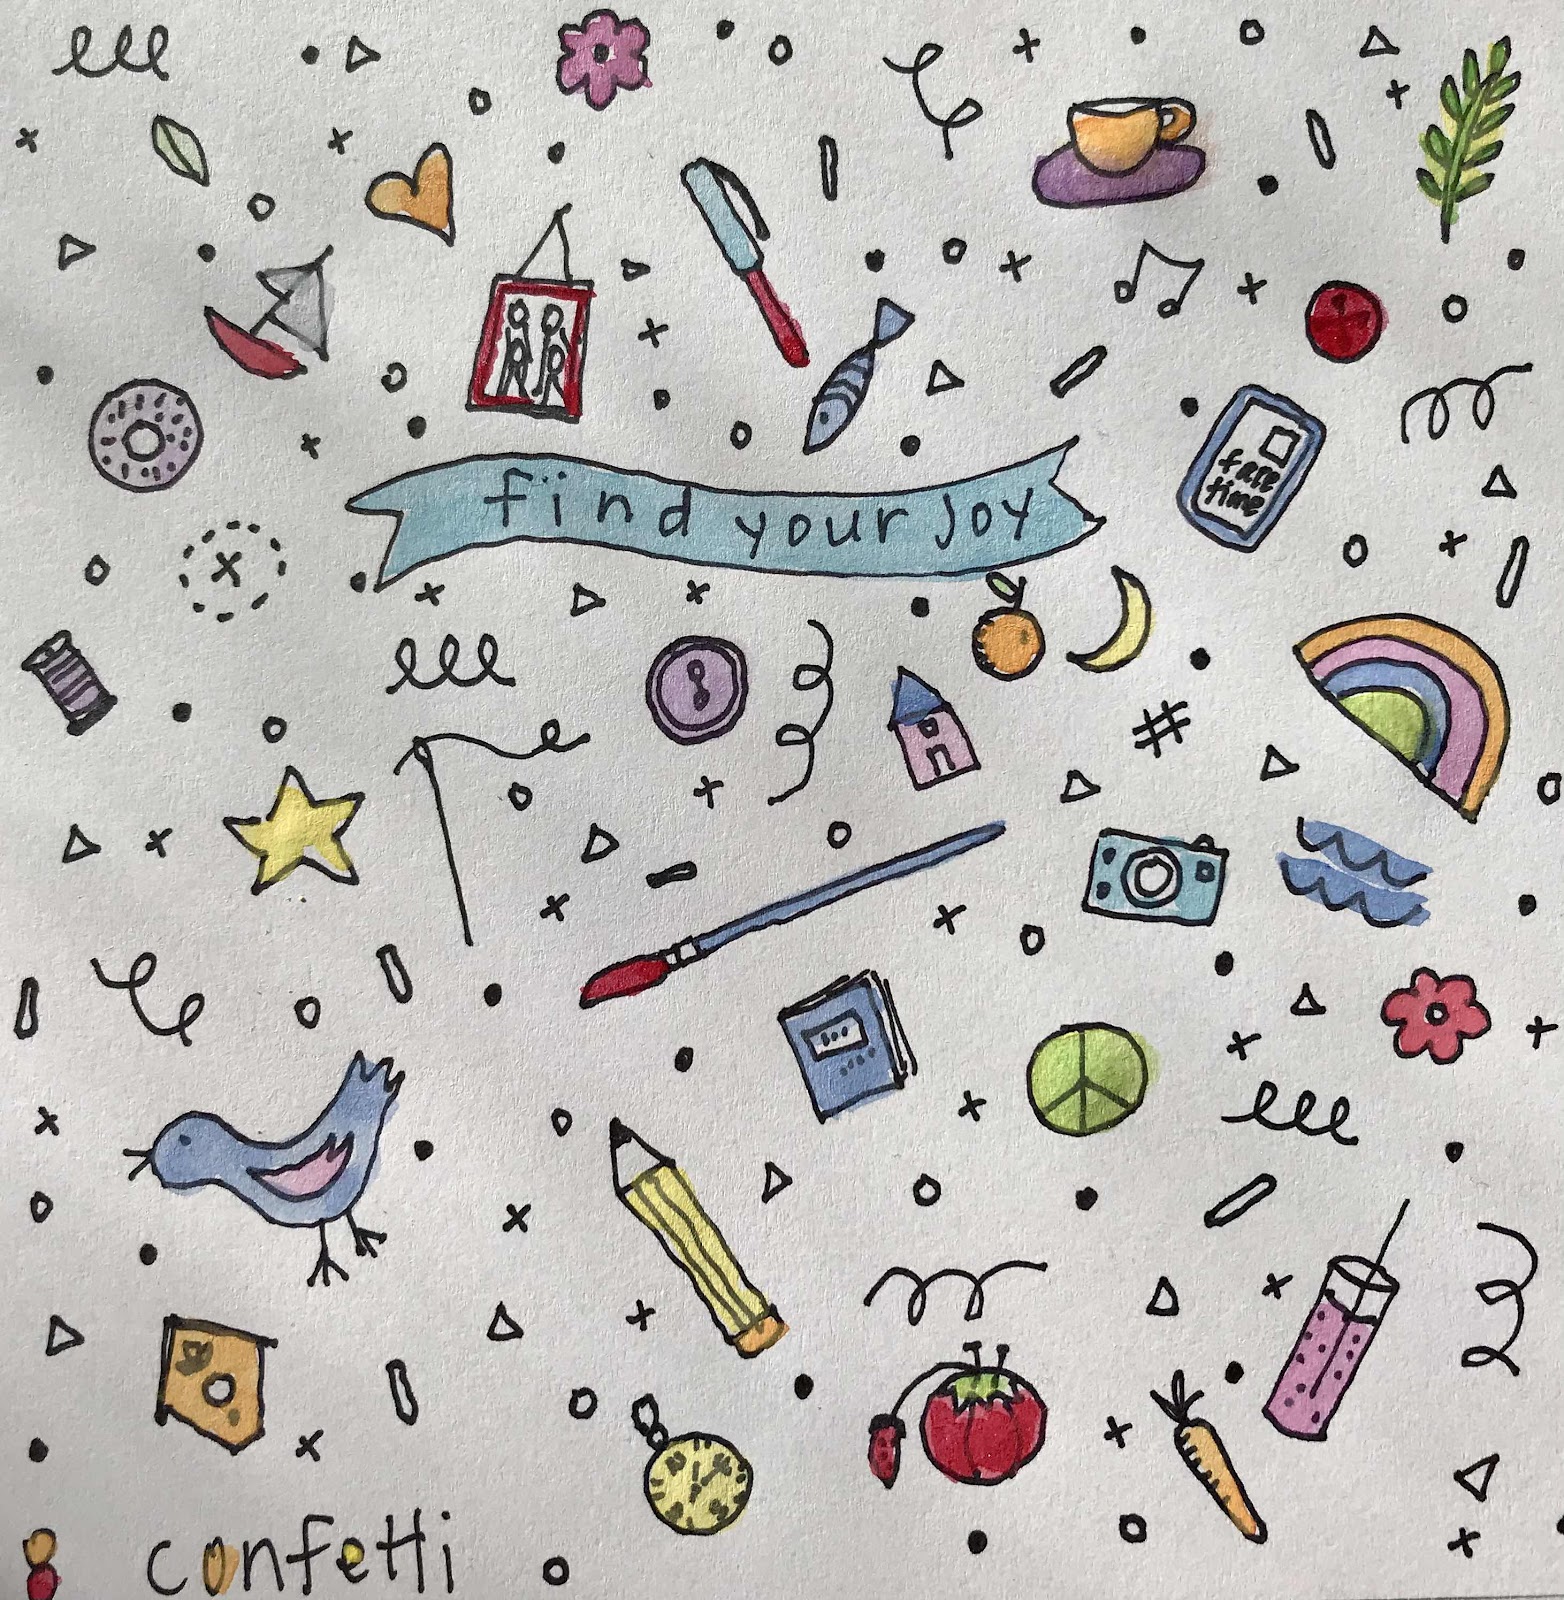 find your joy
face
time
confetti